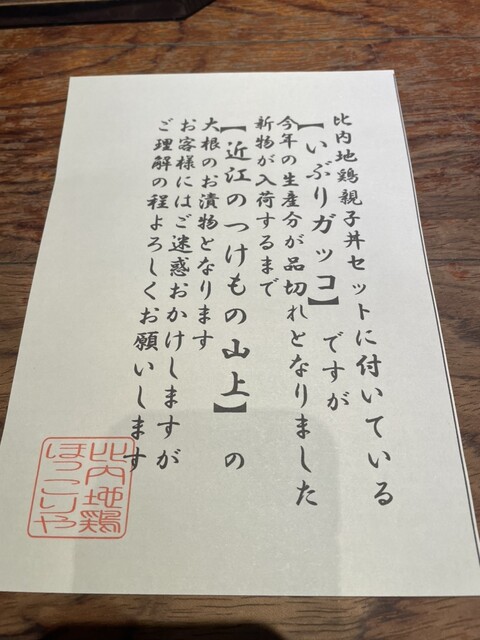 比内地鶏親子丼セットに付いている
【いぶりガッコ】ですが
今年の生産分が品切れとなりました
新物が入荷するまで
【近江のつけもの山上】の
大根のお漬物となります
お客様にはご迷惑おかけしますが
ご理解の程よろしくお願いします
比内地鶏
ほっこりや